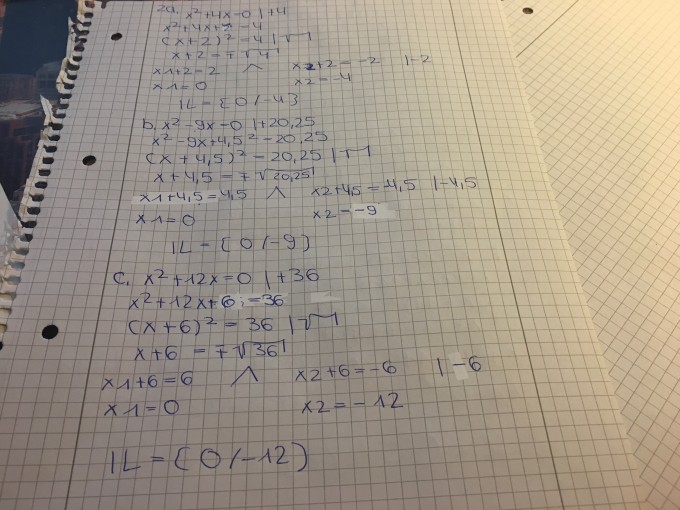 2a. x²+4x=0 |+4
x²+4x+2²=4
(x+2)²=4 |√
x+2=∓√4
x1+2=2 ∧ x2+2=-2 |-2
x1=0 x2=-4
IL={0/-4}
b. x²-9x=0 |+20,25
x²-9x+4,5²=20,25
(x+4,5)²=20,25 |√
x+4,5=∓√20,25
x1+4,5=4,5 ∧ x2+4,5=-4,5 |-4,5
x1=0 x2=-9
IL={0/-9}
c. x²+12x=0 |+36
x²+12x+6²=36
(x+6)²=36 |√
x+6=∓√36
x1+6=6 ∧ x2+6=-6 |-6
x1=0 x2=-12
IL={0/-12}